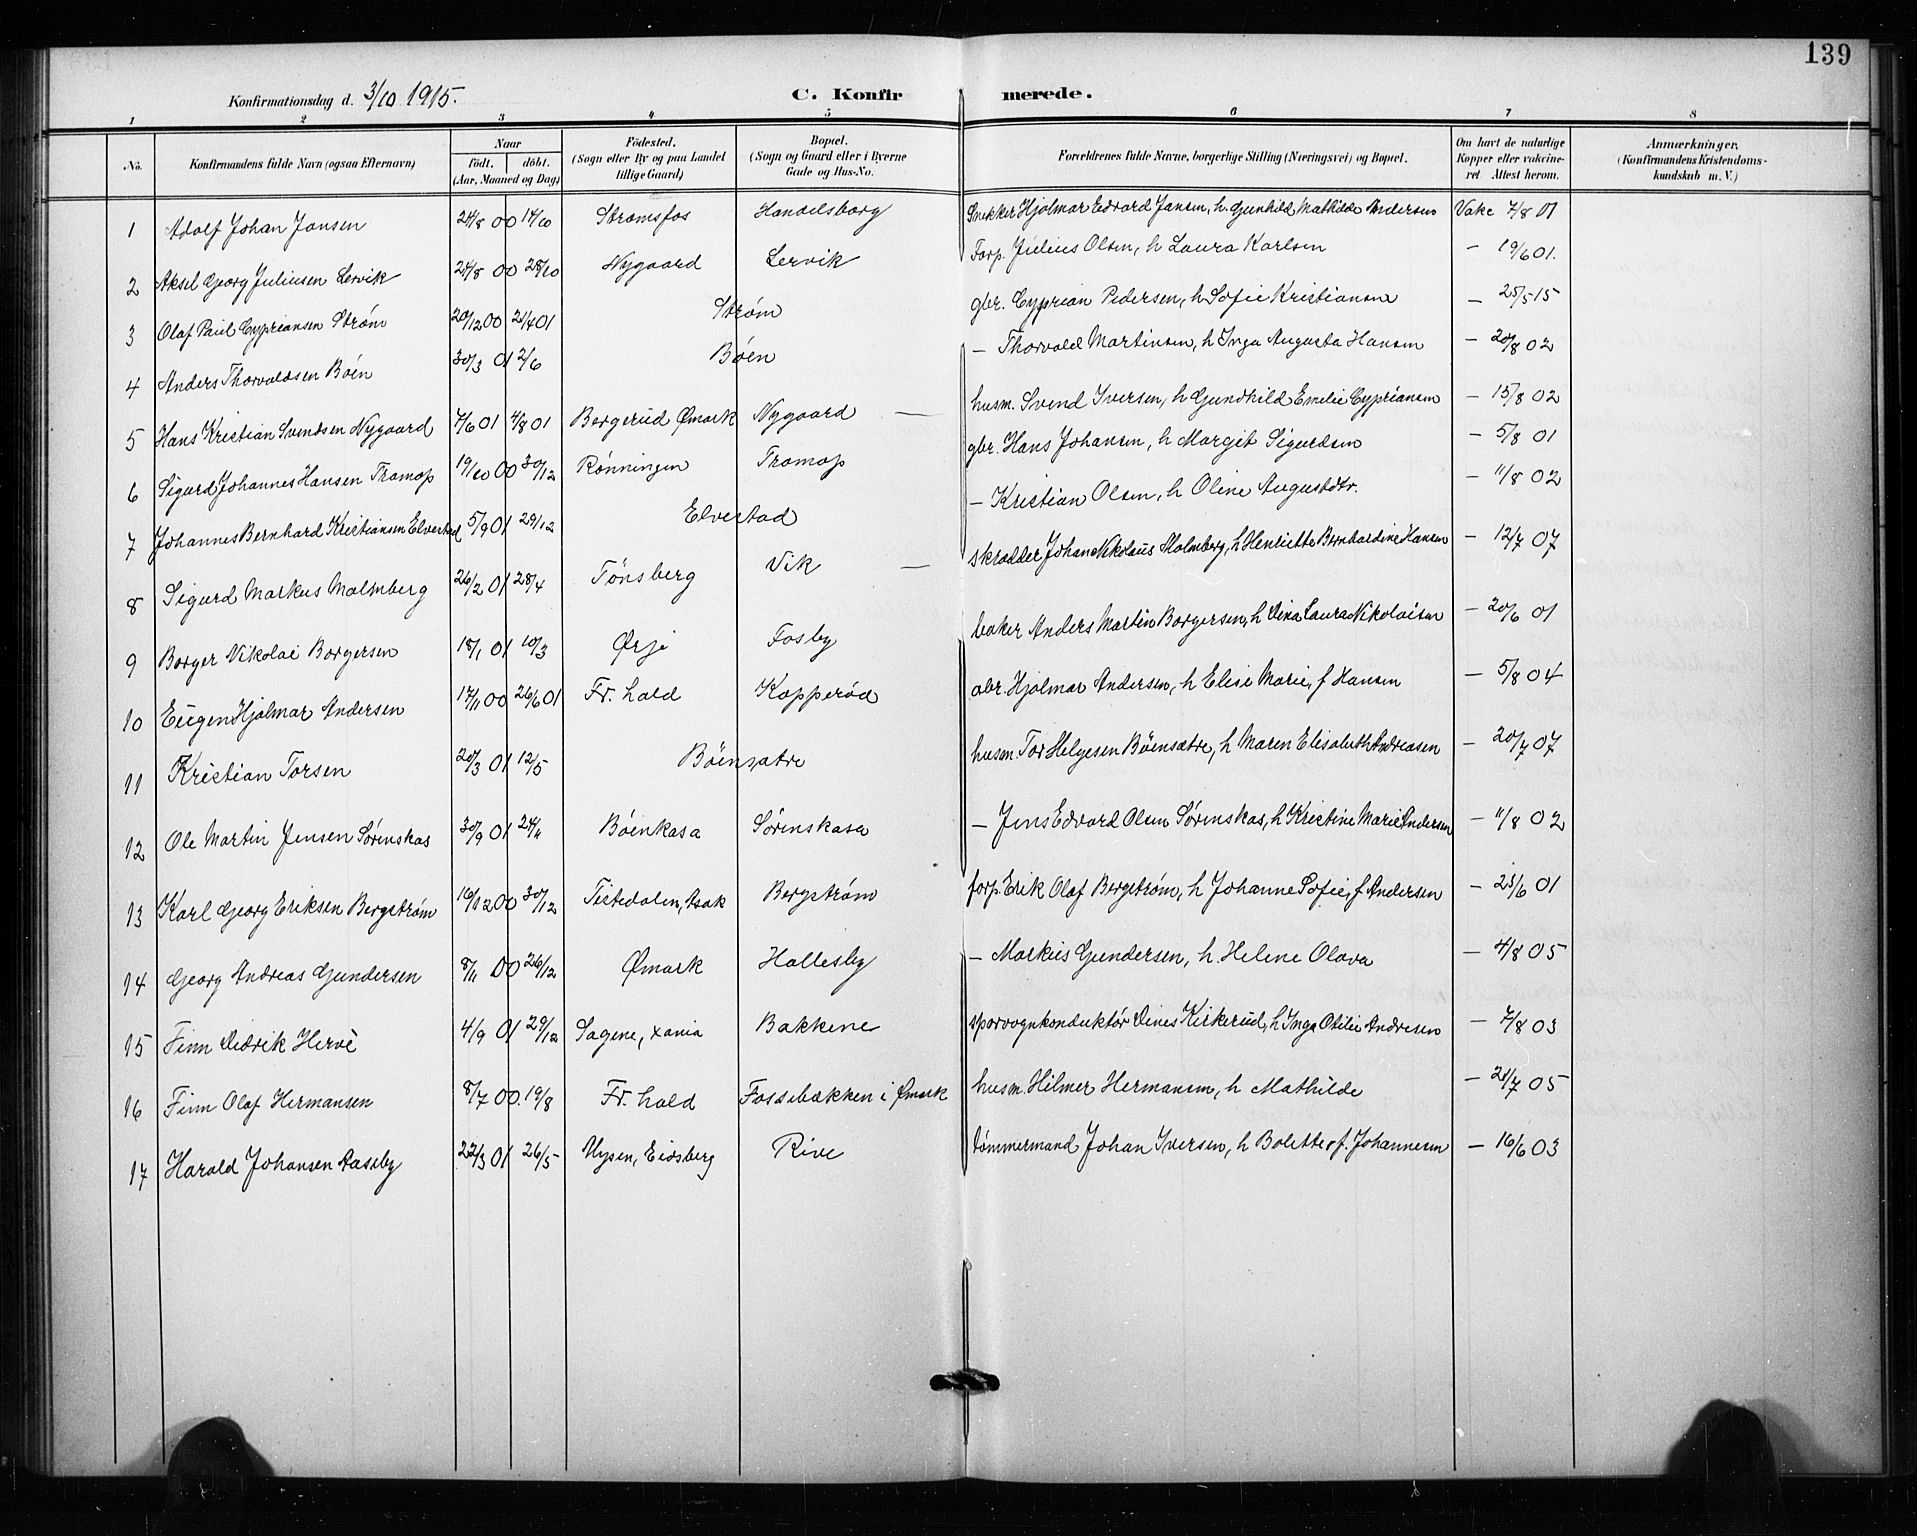 139
Konfirmationsdag d. 3/10 1915. C. Konfir merede.
1 2 3 4 5 6 7 8
No. Konfirmandens fulde Navn (ogsaa Efternavn) Naar födt. döbt. (Aar, Maaned og Dag) Födested. (Sogn eller By og paa Landet tillige Gaard) Bopæl. (Sogn og Gaard eller i Byerne Gade og Hus-No. Forældrenes fulde Navne, borgerlige Stilling (Næringsvei) og Bopæl. Om havt de naturlige Kopper eller vakcineret Attest herom. Anmærkninger, (Konfirmandens Kristendomskundskab m. V.)
1 Adolf Johan Jansen 24/8 00 14/10 Strømsfos Handelsborg Snekker Hjalmar Edvard Jansen, h. Gunhild Mathilde Andersen Vakc 7/8 01
2 Aksel Georg Juliusen Lervik 24/8 00 28/10 Nygaard Lervik Forp. Julius Olsen, h Laura Karlsen — 19/6 01.
3 Olaf Paul Cypriansen Strøm 20/12 00 21/4 01 Strøm gbr. Cyprian Pedersen, h Sofie Kristiansen — 25/5 15
4 Anders Thorvaldsen Böen 30/3 01 2/6 Böen — Thorvald Martinsen, h Inga Augusta Hansen — 20/8 02
5 Hans Kristian Svendsen Nygaard 7/6 01 4/8 01 Bergerud Ømark Nygaard — husm. Svend Iversen, h Gundhild Emelie Cypriansen — 15/8 02
6 Sigurd Johannes Hansen Tramop 19/10 00 30/12 Rönningen Tramop gbr. Hans Johansen, h Margit Sigurdsen — 5/8 01
7 Johannes Bernhard Kristiansen Elvestad 5/9 01 29/12 Elvestad — Kristian Olsen, h Oline Augustdtr. — 11/8 02
8 Sigurd Markus Malmberg 26/2 01 28/4 Tönsberg Vik — skrædder Johan Nikolaus Malmberg, h Henriette Bernhardine Hansen — 12/7 07
9 Borger Nikolai Borgersen 18/1 01 10/3 Ørje Fosby baker Anders Martin Borgersen, h Dina Laura Nikolaisen — 20/6 01
10 Eugen Hjalmar Andersen 17/11 00 26/6 01 Fr.hald Kopperöd abr. Hjalmar Andersen, h Elise Marie, f Hansen — 5/8 04
11 Kristian Torsen 20/3 01 12/5 Böensætre husm. Tor Helgesen Böensætre, h Maren Elisabeth Andreasen — 20/7 07
12 Ole Martin Jensen Sörenskas 30/9 01 24/11 Böenkasa Sörenskasa — Jens Edvard Olsen Sörenskas, h Kristine Marie Andersen — 11/8 02
13 Karl Georg Eriksen Bergstrøm 19/12 00 30/12 Tistedalen, Asak Bergstrøm forp. Erik Olaf Bergstrøm, h Johanne Sofie, f Andersen — 23/6 01
14 Georg Andreas Gundersen 8/11 00 26/12 Ømark Hallesby — Markus Gundersen, h. Helene Olava — 4/8 05
15 Finn Didrik Hervè 4/9 01 29/12 Sagene, Xania Bakkene sporvognkonduktør Dines Kirkerud, h Inga Otilie Andresen — 7/8 03
16 Finn Olaf Hermansen 8/7 00. 19/8 Fr.hald Fossebækken i Ømark husm. Hilmer Hermansen, h Mathilde — 21/7 05
17 Harald Johansen Aaseby 22/3 01 26/5 Eidsberg Rive tømmermand Johan Iversen, h Bolette f. Johannesen — 16/6 03